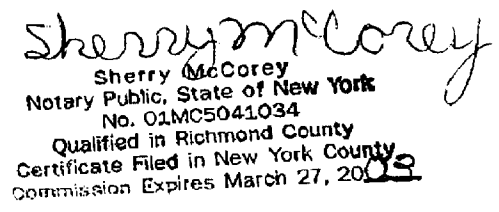 Sherry McCorey
Sherry McCorey
Notary Public, State of New York
No. 01MC5041034
Qualified in Richmond County
Certificate Filed in New York County
Commission Expires March 27, 2003